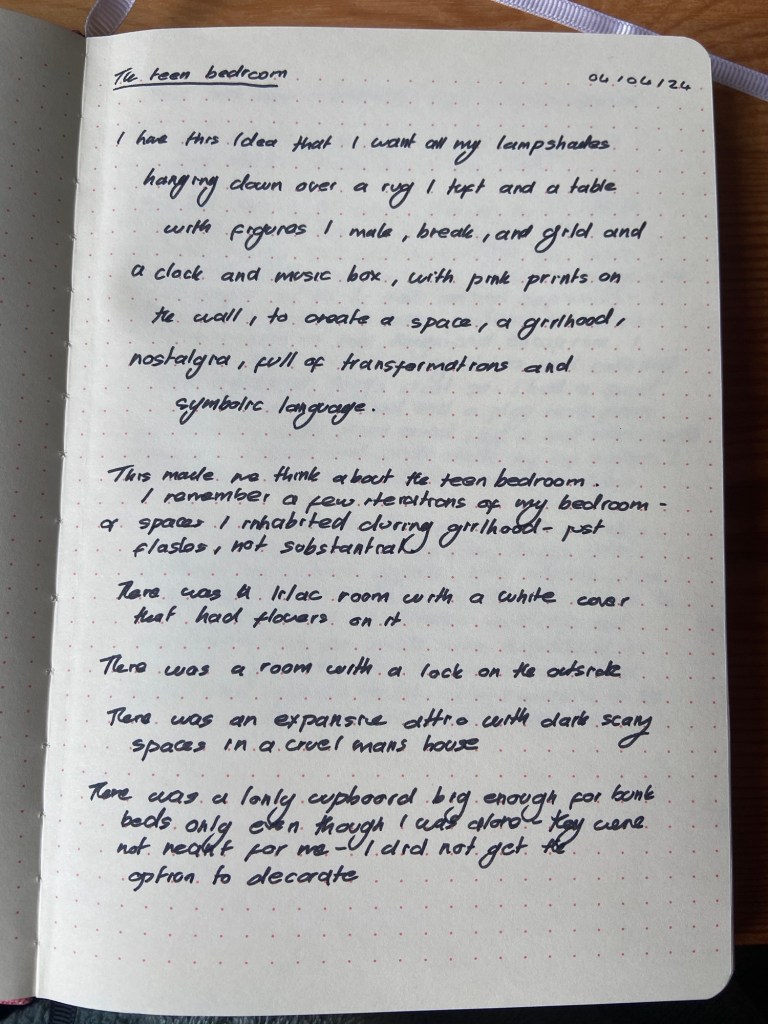 The teen bedroom
04/04/24
I have this Idea that I want all my lampshades
hanging down over a rug I tuft and a table
with figures I make, break, and gild and
a clock and music box, with pink prints on
the wall, to create a space, a girlhood,
nostalgia, full of transformations and
symbolic language.
This made me think about the teen bedroom.
I remember a few iterations of my bedroom -
or spaces I inhabited during girlhood - just
flashes, not substantial
There was a lilac room with a white cover
that had flowers on it
There was a room with a lock on the outside
There was an expansive attic with dark scary
spaces in a cruel mans house
There was a lonly cupboard big enough for bunk
beds only even though I was alone - they were
not meant for me - I did not get the
option to decorate